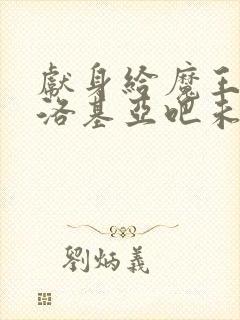 獻身給魔王
洛基亞吧未
劉炳義